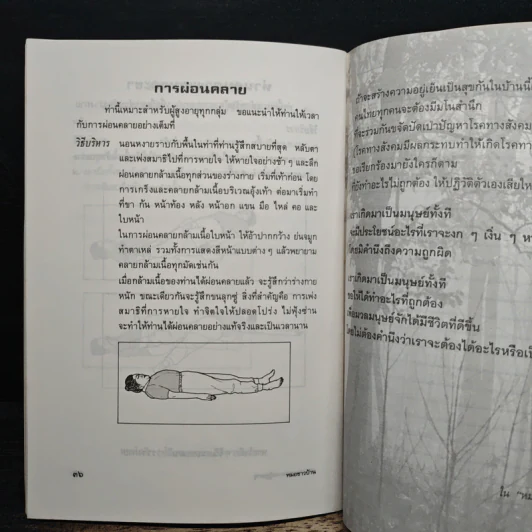 การผ่อนคลาย
ท่านี้เหมาะสำหรับผู้สูงอายุทุกกลุ่ม ขอแนะนำให้ท่านให้เวลา
กับการผ่อนคลายอย่างเต็มที่
วิธีบริหาร นอนหงายราบกับพื้นในท่าที่ท่านรู้สึกสบายที่สุด หลับตา
และเพ่งสมาธิไปที่การหายใจ ให้หายใจอย่างช้า ๆ และลึก
ผ่อนคลายกล้ามเนื้อทุกส่วนของร่างกาย เริ่มที่เท้าก่อน โดย
การเกร็งและคลายกล้ามเนื้อบริเวณอุ้งเท้า ต่อมาเริ่มทำ
ที่ขา ก้น หน้าท้อง หลัง หน้าอก แขน มือ ไหล่ คอ และ
ใบหน้า
ในการผ่อนคลายกล้ามเนื้อใบหน้า ให้อ้าปากกว้าง ย่นจมูก
ทำตาเหล่ รวมทั้งการแสดงสีหน้าแบบต่าง ๆ แล้วพยายาม
คลายกล้ามเนื้อทุกมัดเช่นกัน
เมื่อกล้ามเนื้อของท่านได้ผ่อนคลายแล้ว จะรู้สึกว่าร่างกาย
หนัก ขณะเดียวกันจะรู้สึกขนลุกซู่ สิ่งที่สำคัญคือ การเพ่ง
สมาธิที่การหายใจ ทำจิตใจให้ปลอดโปร่ง ไม่ฟุ้งซ่าน
จะทำให้ท่านได้ผ่อนคลายอย่างแท้จริงและเป็นเวลานาน
๓๖
หมอชาวบ้าน
ถ้าจะสร้างความอยู่เย็นเป็นสุขกันในบ้านนี้
คนไทยทุกคนจะต้องมีมโนสำนึก
ที่จะร่วมกันขจัดปัดเป่าปัญหาโรคทางสังคม
(โรคทางสังคมมีผลกระทบทำให้เกิดโรคทา
ขอเรียกร้องมายังใครก็ตาม
ที่ยังทำอะไรไม่ถูกต้อง ให้ปฏิวัติตัวเองเสียให
เราเกิดมาเป็นมนุษย์ทั้งที
จะมีประโยชน์อะไรที่เราจะงก ๆ เงิ่น ๆ ห
โดยมิคำนึงถึงความถูกผิด
เราเกิดมาเป็นมนุษย์ทั้งที
ขอให้ได้ทำอะไรที่ถูกต้อง
เพื่อมวลมนุษย์จักได้มีชีวิตที่ดีขึ้น
โดยไม่ต้องคำนึงว่าเราจะต้องได้อะไรหรือเป็
ใน "หม